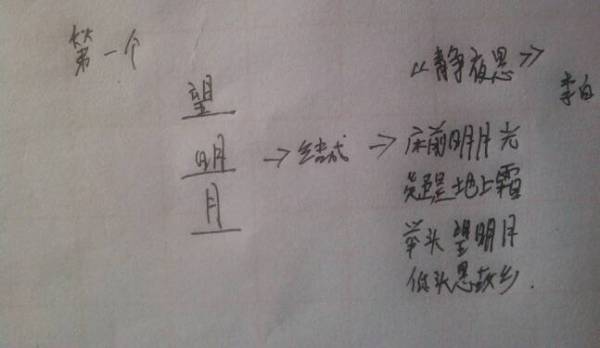 第一个
望
明 → 结成 →
月
《静夜思》
李白
床前明月光
疑是地上霜
举头望明月
低头思故乡.